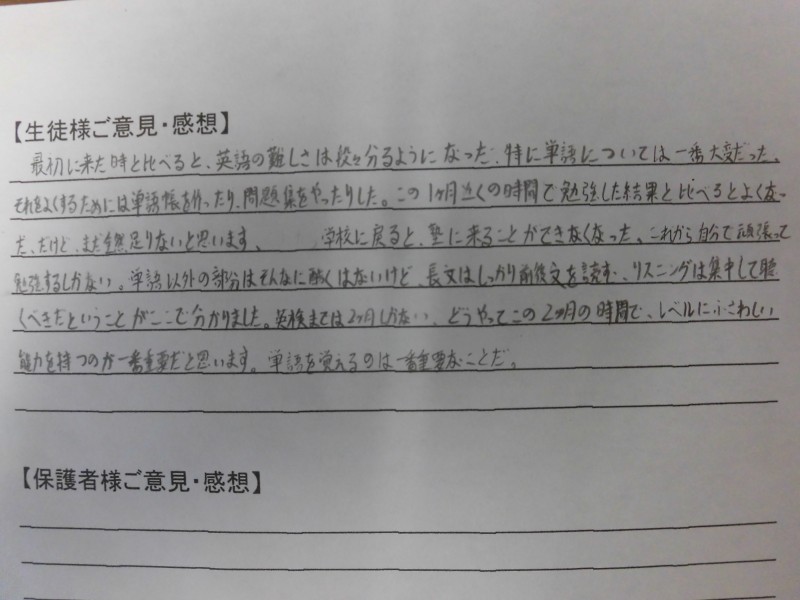 【生徒様ご意見・感想】
最初に来た時と比べると、英語の難しさは段々分るようになった。特に単語については一番大変だった。
それをよくするためには単語帳を作ったり、問題集をやったりした。この1ヶ月近くの時間で勉強した結果と比べるとよくなっ
だ、だけど、まだ全然足りないと思います。 学校に戻ると、塾に来ることができなくなった。これから自分で頑張って
勉強するしかない。単語以外の部分はそんなに酷くはないけど、長文はしっかり前後文を読む、リスニングは集中して聴
くべきだということがここで分かりました。英検までは2ヶ月しかない、どうやってこの2ヶ月の時間で、レベルにふさわしい
能力を持つのが一番重要だと思います。単語を覚えるのは一番重要なことだ。
【保護者様ご意見・感想】